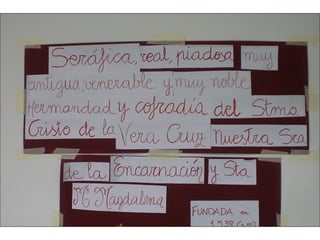 Seráfica, real, piadosa muy
antigua, venerable y muy noble
Hermandad y cofradia del Stmo.
Cristo de la Vera Cruz Nuestra Sra
de la Encarnación y Sta
Mª Magdalena
FUNDADA en
1.538